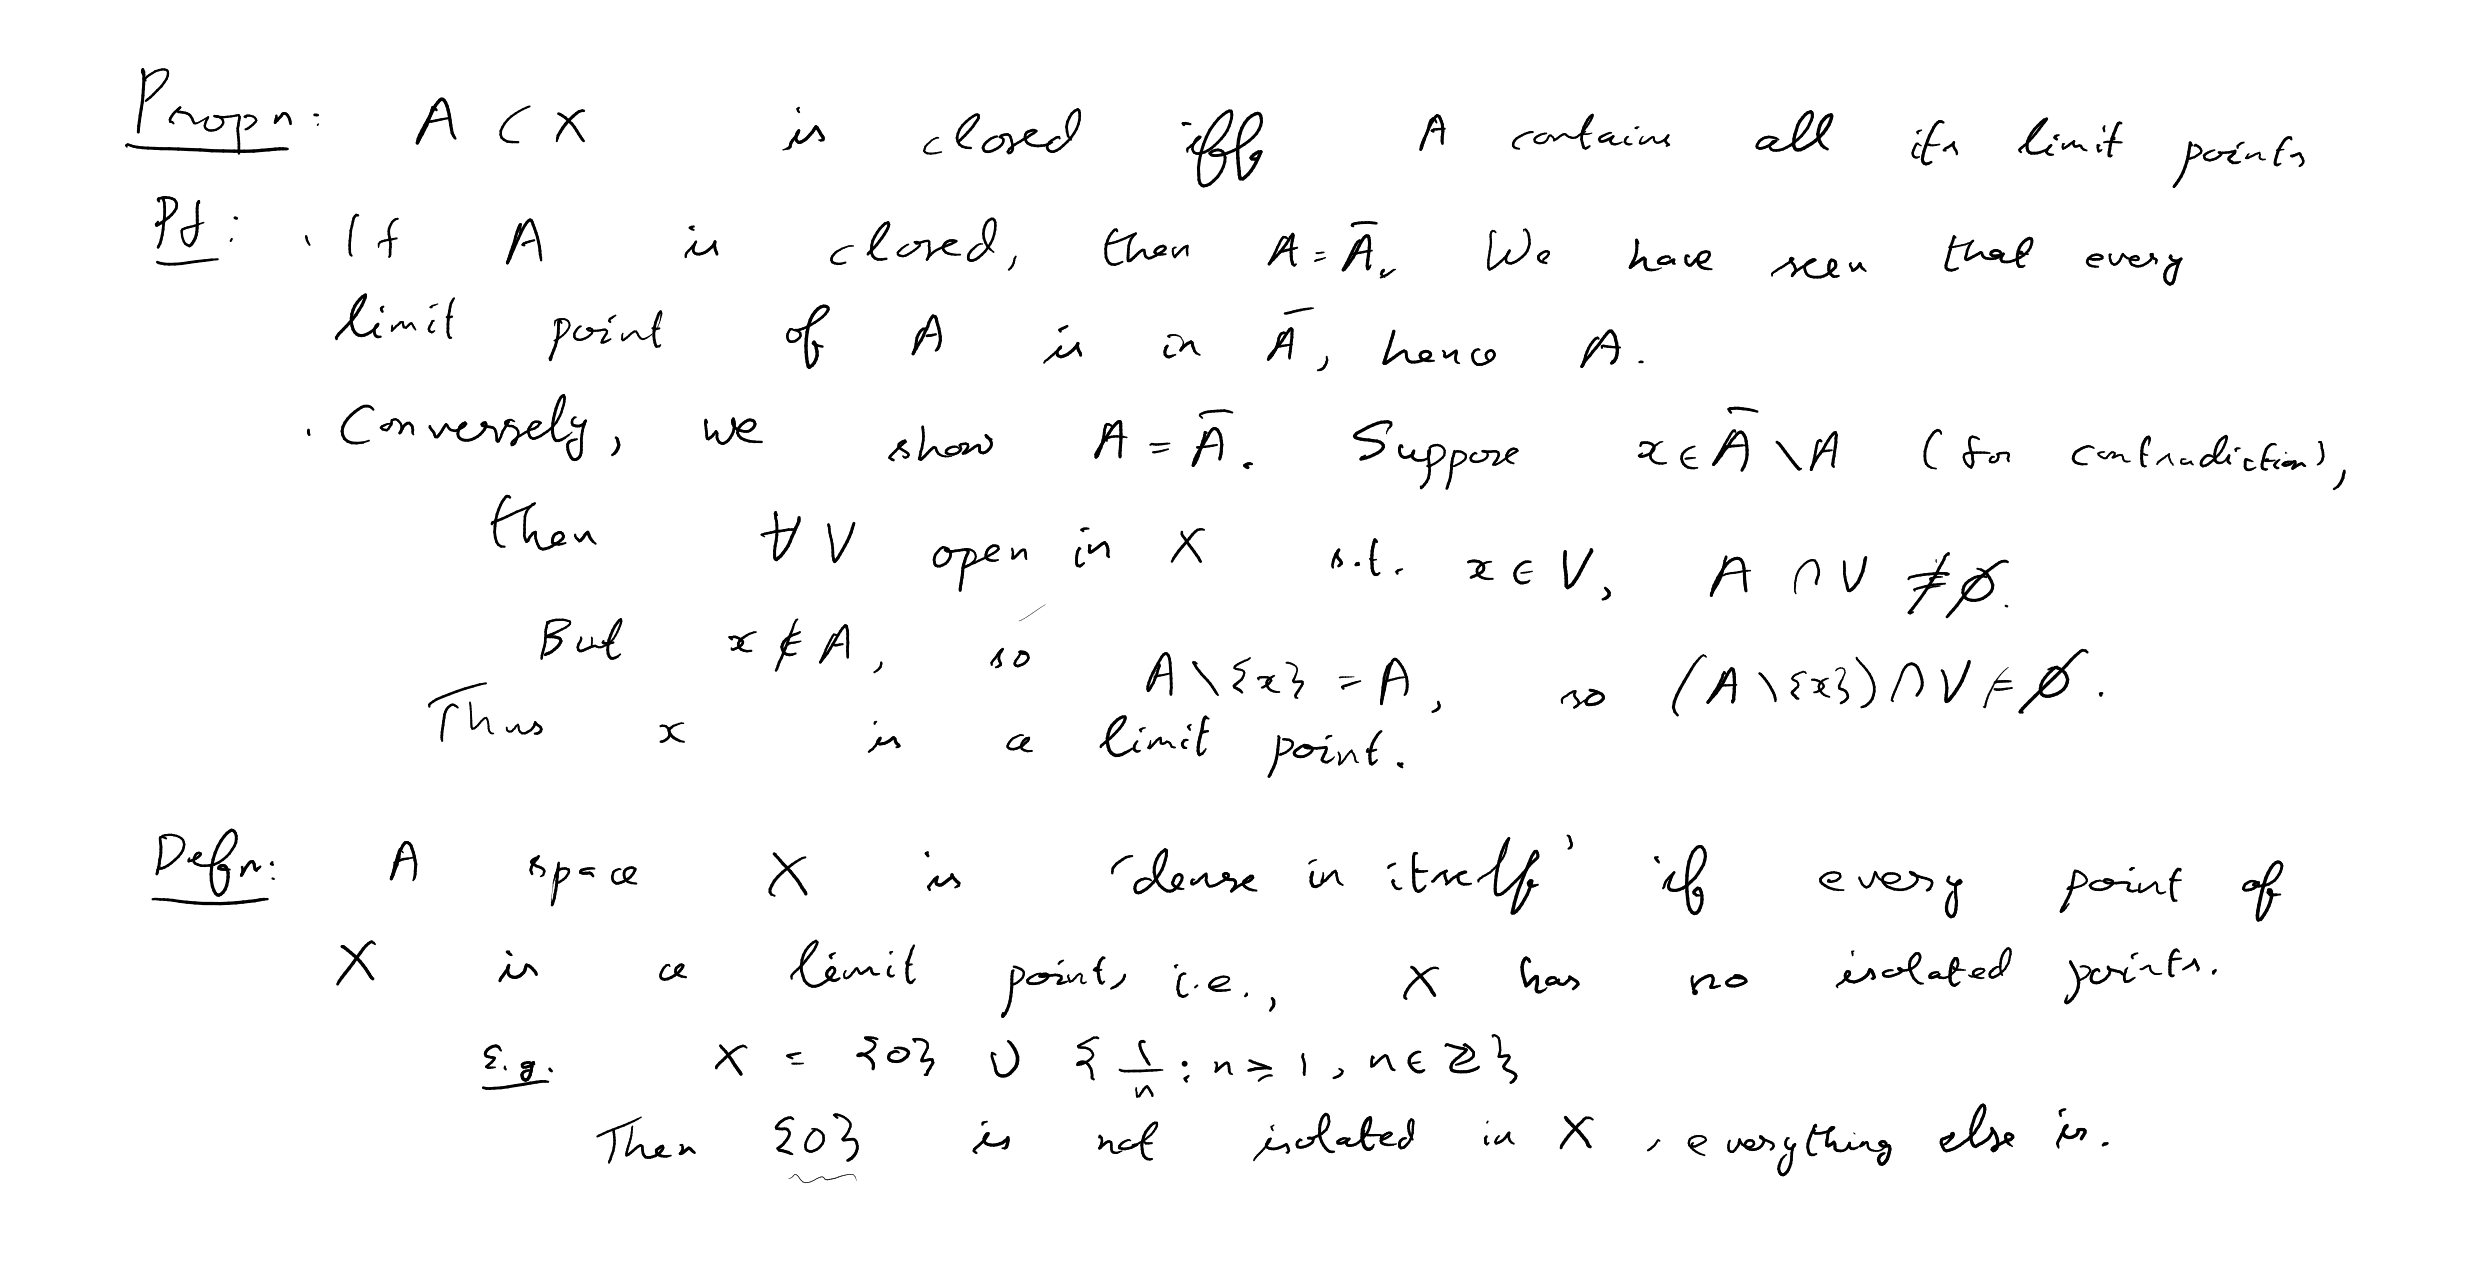 Propn: A ⊂ X is closed iff A contains all its limit points
Pf: · If A is closed, then A = Ā. We have seen that every
limit point of A is in Ā, hence A.
· Conversely, we show A = Ā. Suppose x ∈ Ā \ A (for contradiction),
then ∀ V open in X s.t. x ∈ V, A ∩ V ≠ ∅.
But x ∉ A, so A \ {x} = A, so (A \ {x}) ∩ V ≠ ∅.
Thus x is a limit point.
Defn: A space X is 'dense in itself' if every point of
X is a limit point, i.e., X has no isolated points.
E.g. X = {0} ∪ {1/n : n ≥ 1, n ∈ ℤ}
Then {0} is not isolated in X, everything else is.